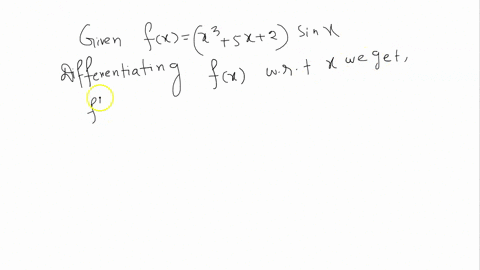 Given f(x)=(x³+5x+2) sinx
Differentiating f(x) w.r.t x we get,
f'